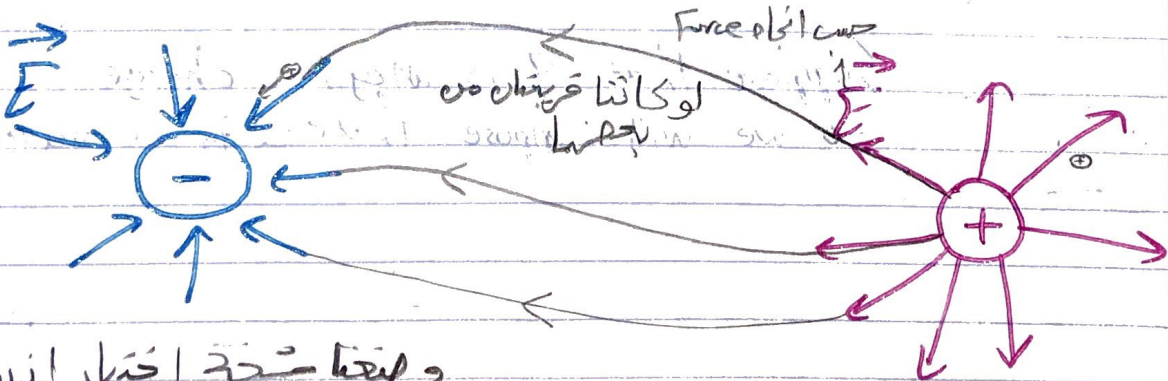 حسب اتجاه Force
E
E
لو كانتا قريبتان من
بعضهما
⊕
⊕
-
+
وضعنا شحنة اختبار